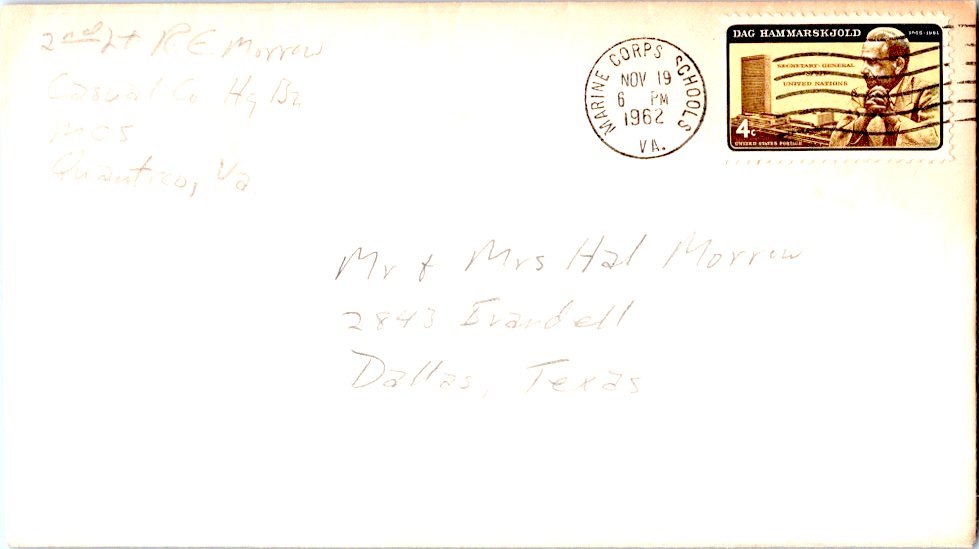 2nd Lt R.E. Morrow
Casual Co Hq Bn
MCS
Quantico, Va
MARINE CORPS SCHOOLS
NOV 19
6 PM
1962
VA.
DAG HAMMARSKJOLD 1905-1961
SECRETARY-GENERAL
OF THE
UNITED NATIONS
4c
UNITED STATES POSTAGE
Mr + Mrs Hal Morrow
2843 Ivandell
Dallas, Texas